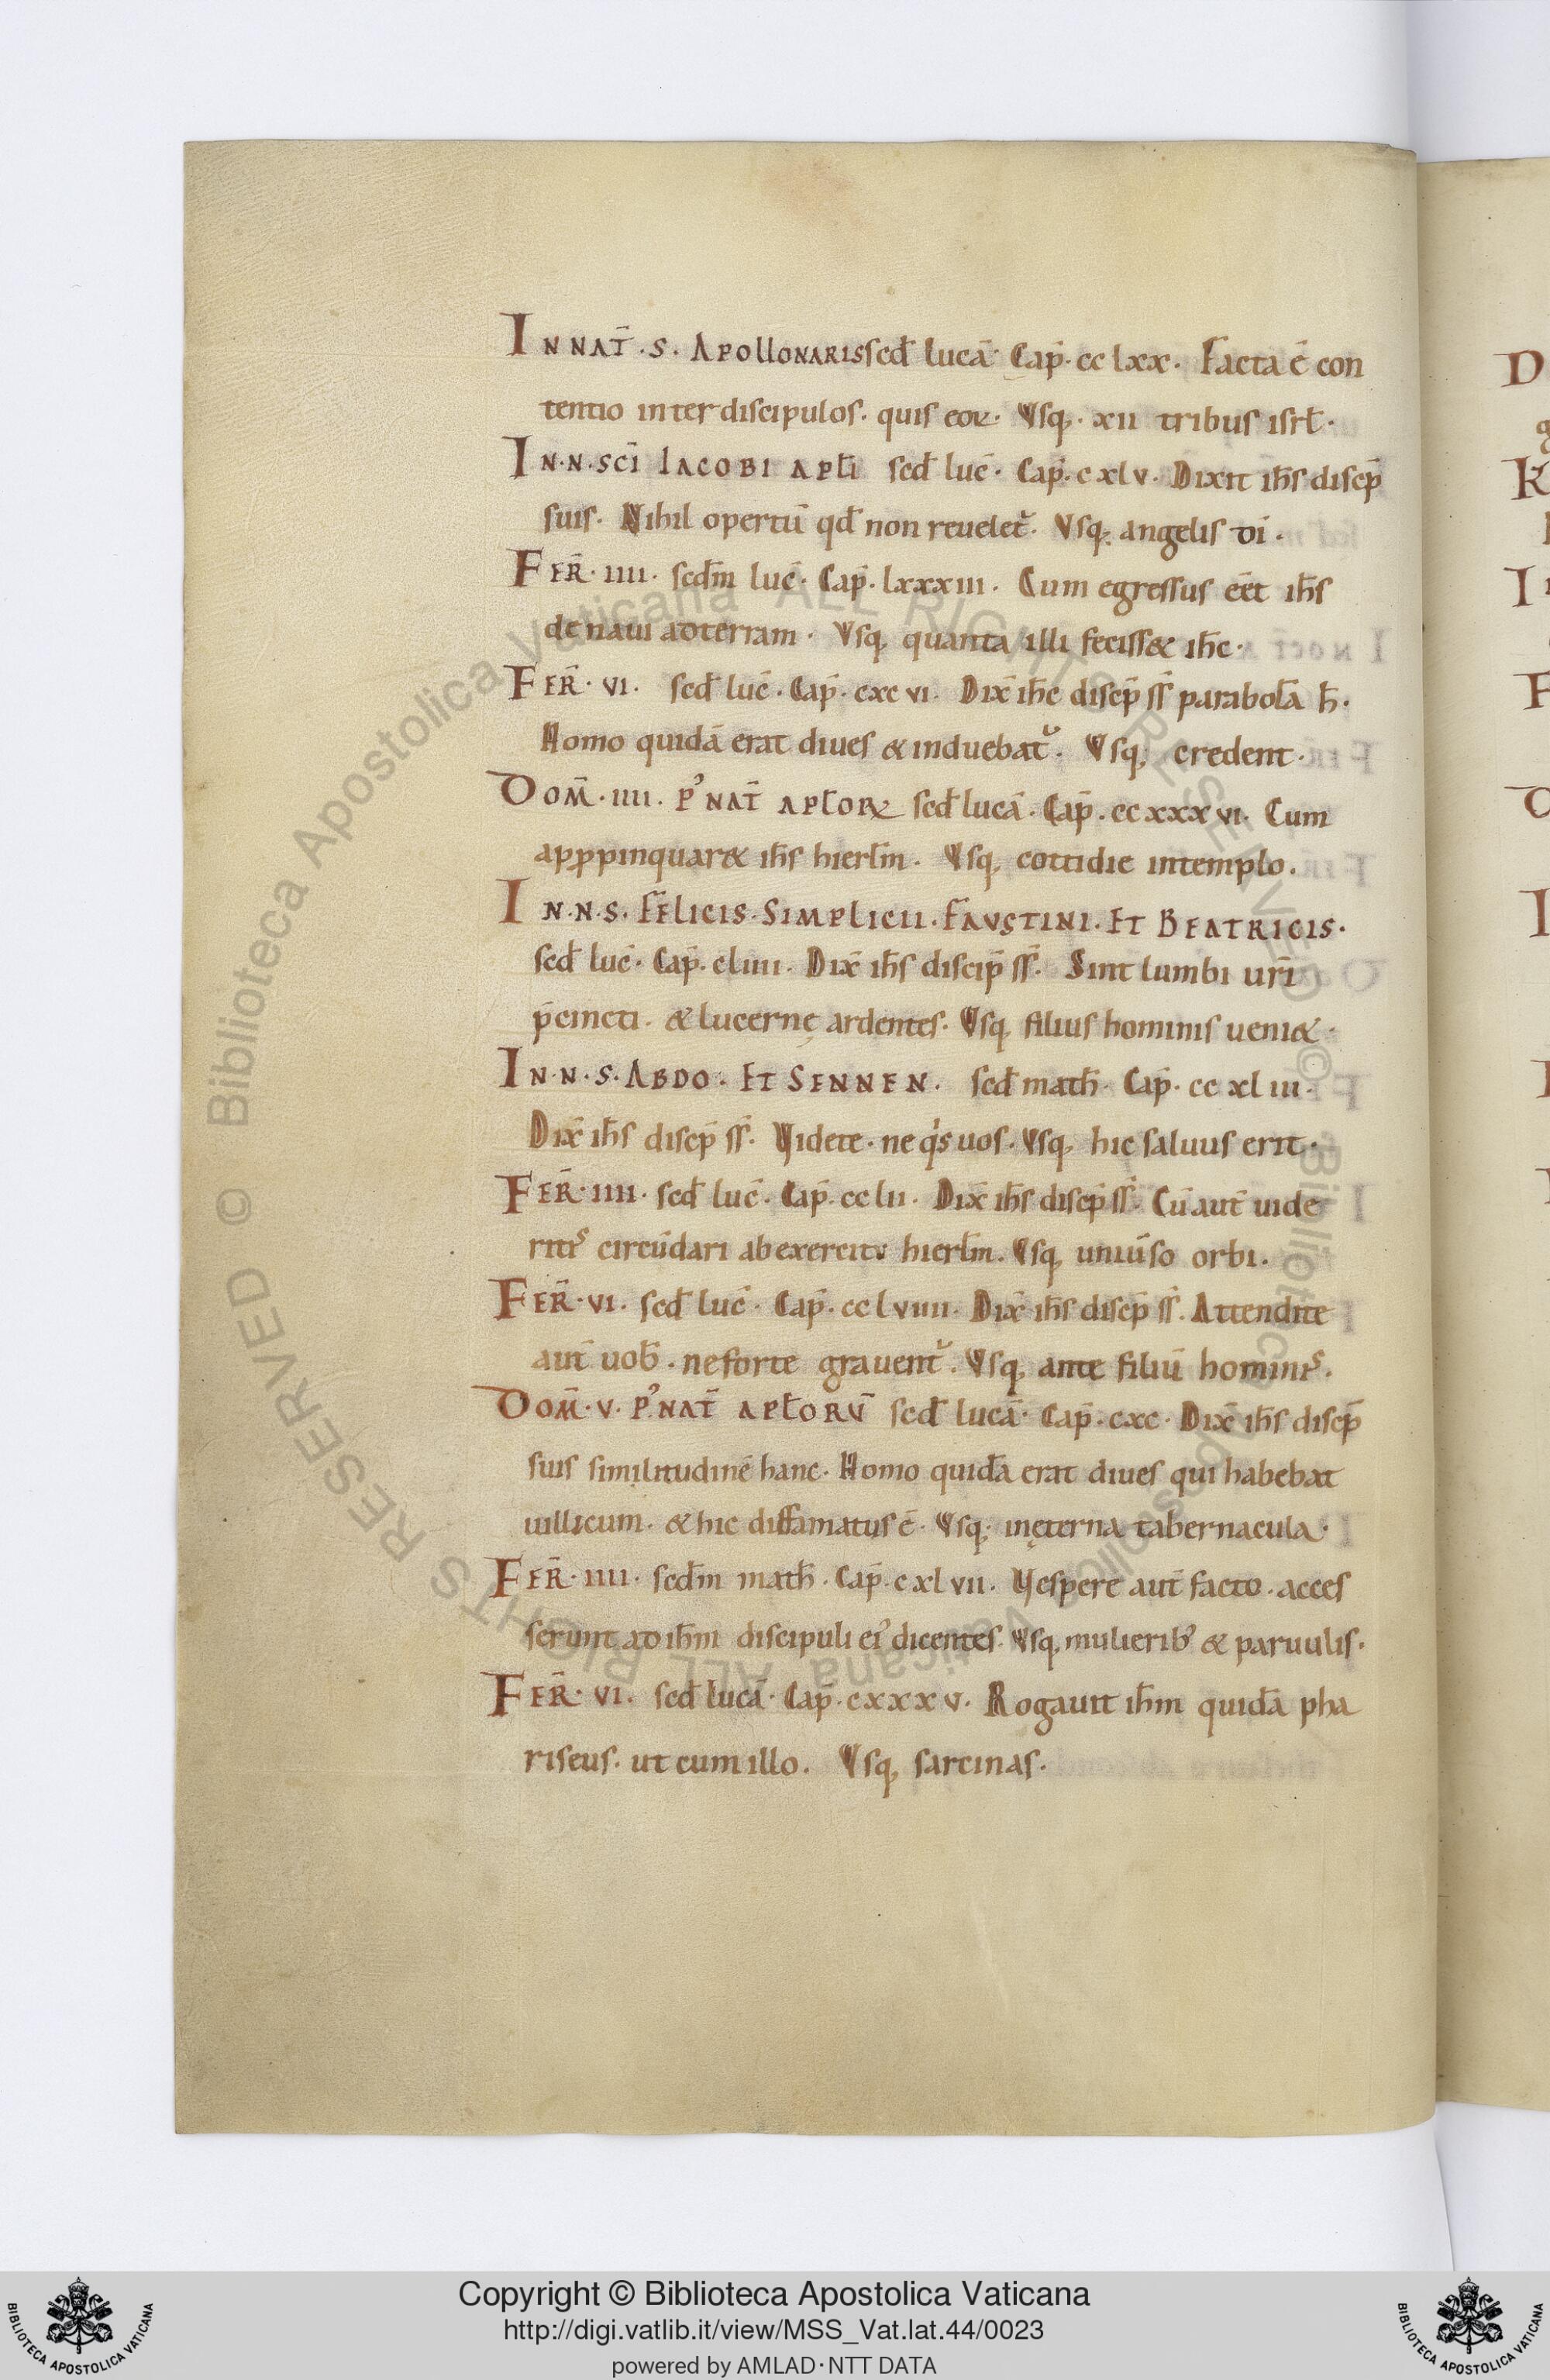 IN NAT̄ · S · APOLLONARIS scd̄ lucā · Cap̄ · cc lxx · Facta ē con
tentio inter discipulos · quis eoꝝ · Vsq; · xii tribus isrł ·
IN · N · SC̄I IACOBI APŁI scd̄ luc̄ · Cap̄ · c xl v · Dixit ih̄s discip̄
suis · Nihil opertū qd̄ non reuelet᷑ · Vsq; angelis dī ·
FER̄ · IIII · scdm̄ luc̄ · Cap̄ · lxxxiii · Cum egressus eēt ih̄s
de naui ad terram · Vsq; quanta illi feciss& ih̄c ·
FER̄ · VI · scd̄ luc̄ · Cap̄ · cxc vi · Dix̄ ih̄c discp̄ ss̄ parabolā h̄ ·
Homo quidā erat diues & induebat᷑ · Vsq; credent ·
DOM̄ · IIII · P᾿ NAT̄ APŁOꝝ scd̄ lucā · Cap̄ · cc xxx vi · Cum
appropinquar& ih̄s hierłm · Vsq; cottidie in templo ·
IN · N · S · FELICIS · SIMPLICII · FAVSTINI · ET BEATRICIS ·
scd̄ luc̄ · Cap̄ · cliiii · Dix̄ ih̄s discip̄ ss̄ · Sint lumbi urī
p̄cincti · & lucernę ardentes · Vsq; filius hominis ueni& ·
IN · N · S · ABDO · ET SENNEN · scd̄ math̄ · Cap̄ · cc xl iii ·
Dix̄ ih̄s discp̄ ss̄ · Videte · ne qis uos · Vsq; hic saluus erit ·
FER̄ · IIII · scd̄ luc̄ · Cap̄ · cc lii · Dix̄ ih̄s discp̄ ss̄ · Cū aut̄ uide
ritis circūdari ab exercitu hierłm · Vsq; uniūso orbi ·
FER̄ · VI · scd̄ luc̄ · Cap̄ · cc lviiii · Dix̄ ih̄s discip̄ ss̄ · Attendite
aut̄ uob̄ · ne forte grauent᷑ · Vsq; ante filiū hominis ·
DOM̄ · V · P᾿ NAT̄ APŁORV̄ scd̄ lucā · Cap̄ · cxc · Dix̄ ih̄s discp̄
suis similitudinē hanc · Homo quidā erat diues qui habebat
uillicum · & hic diffamatus ē · Vsq; in ęterna tabernacula ·
FER̄ · IIII · scdm̄ math̄ · Cap̄ · c xl vii · Vespere aut̄ facto · acces
serunt ad ih̄m discipuli ei᾿ dicentes · Vsq; mulierib᾿ & paruulis ·
FER̄ · VI · scd̄ lucā · Cap̄ · cxxxv · Rogauit ih̄m quidā pha
riseus · ut cum illo · Vsq; sarcinas ·
© Biblioteca Apostolica Vaticana ALL RIGHTS RESERVED © Biblioteca Apostolica Vaticana ALL RIGHTS RESERVED
Copyright © Biblioteca Apostolica Vaticana
http://digi.vatlib.it/view/MSS_Vat.lat.44/0023
powered by AMLAD·NTT DATA
BIBLIOTECA APOSTOLICA VATICANA
BIBLIOTECA APOSTOLICA VATICANA